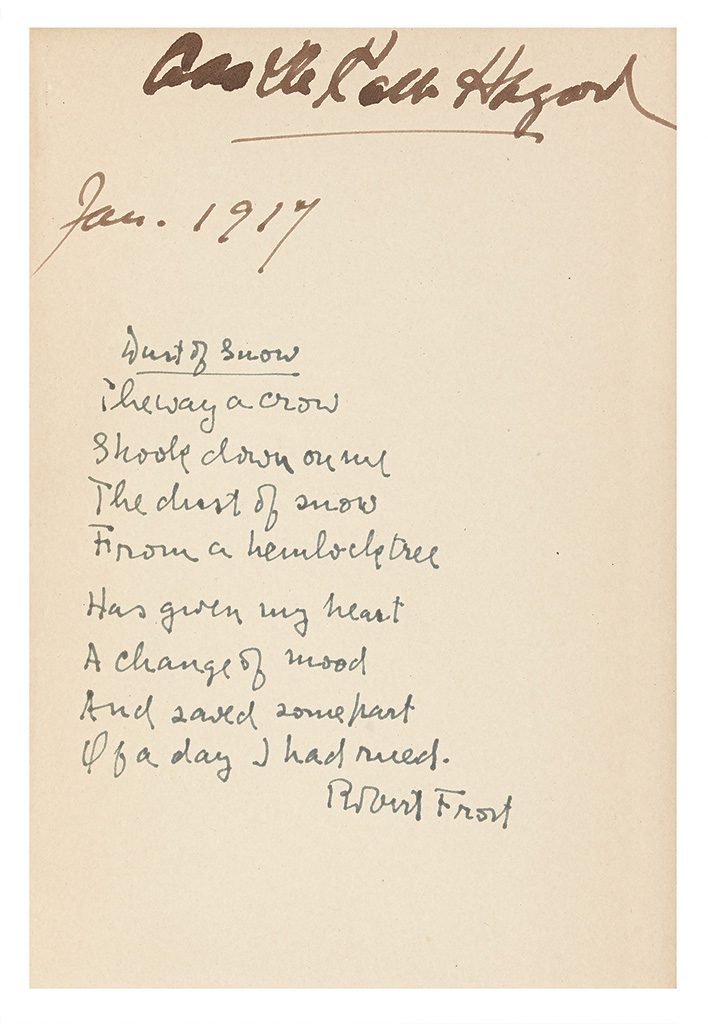 Hagard
Jan. 1917
Dust of Snow
The way a crow
Shook down on me
The dust of snow
From a hemlock tree
Has given my heart
A change of mood
And saved some part
Of a day I had rued.
Robert Frost